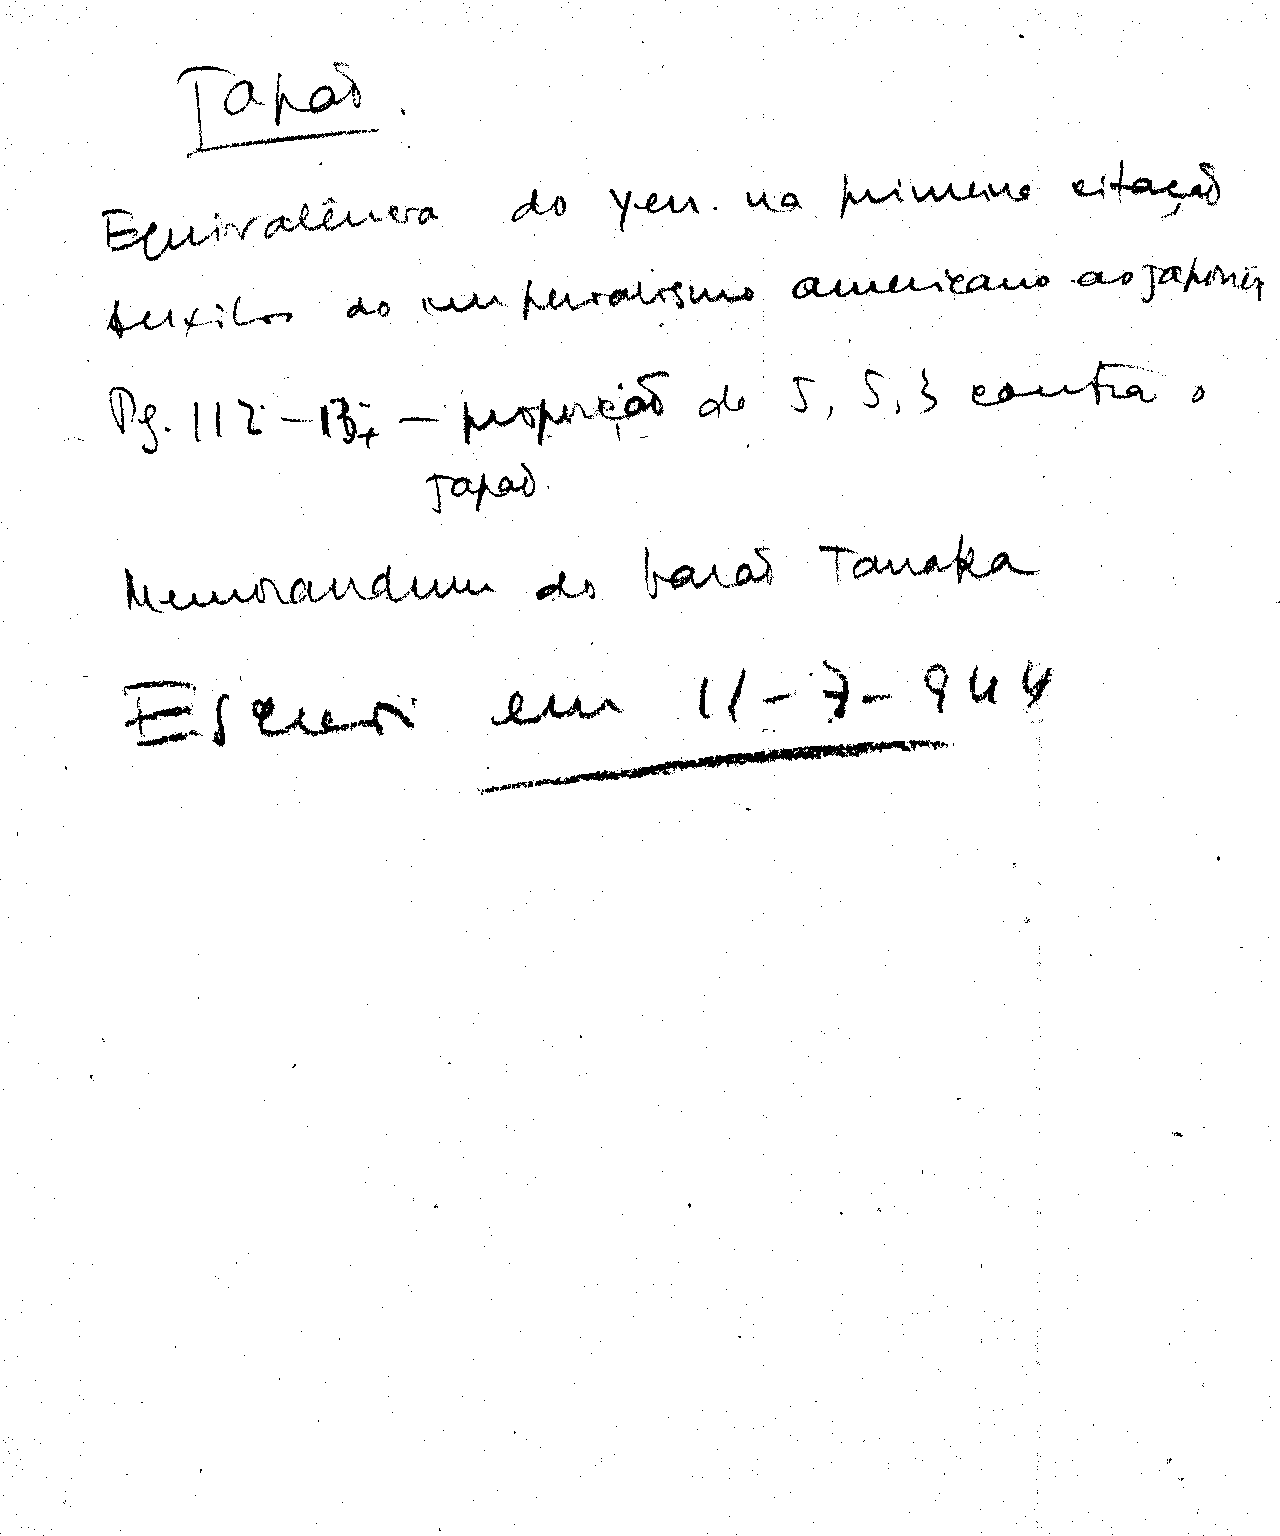 Japão.
Equivalência do yen. na primeira citação
Auxilios do imperialismo americano ao japonês
Pg. 112 - — proporção de 5, 5, 3 contra o
Japão.
Memorandum do barão Tanaka
Escrevi em 11-7-944